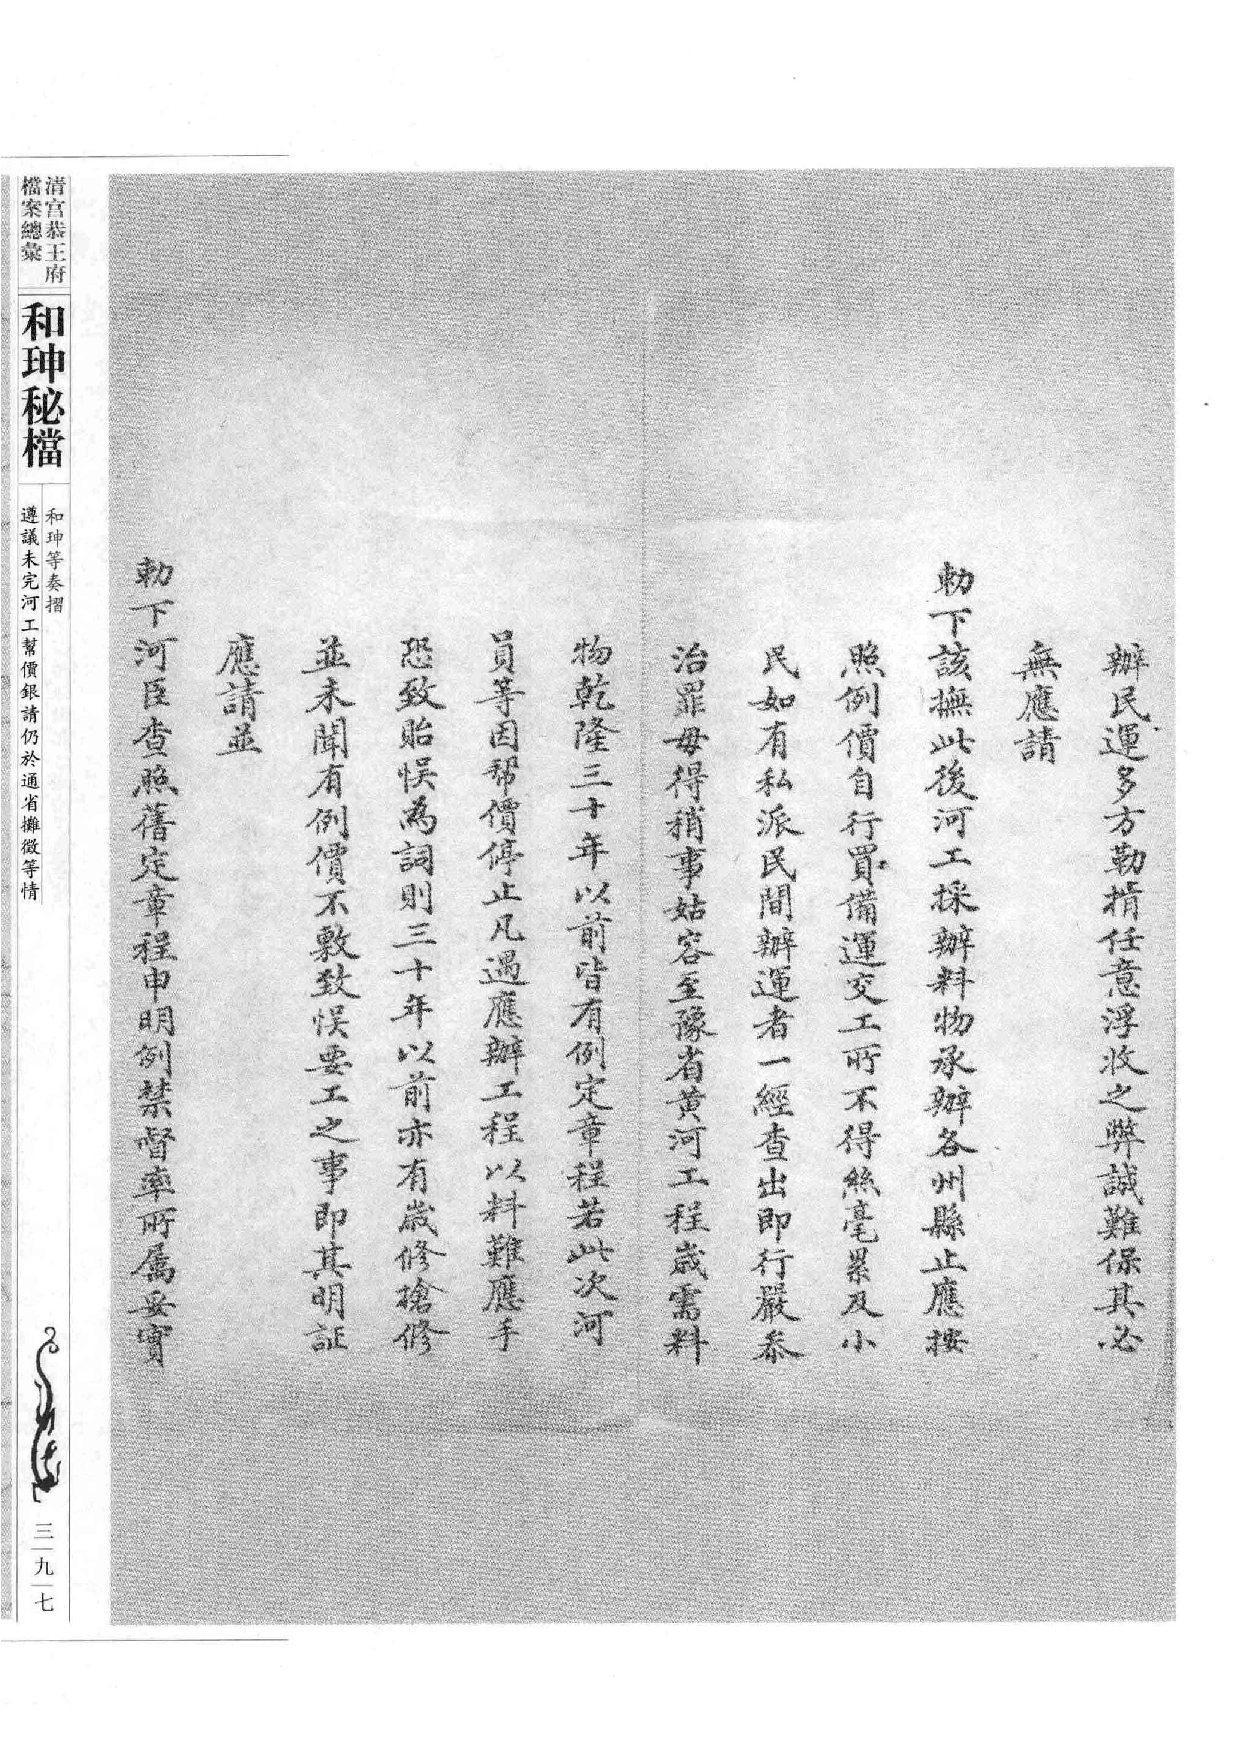 辦民運多方勒掯任意浮收之弊誠難保其必
無應請
勅下該撫此後河工採辦料物承辦各州縣止應按
照例價自行買備運交工所不得絲毫累及小
民如有私派民間辦運者一經查出即行嚴叅
治罪毋得稍事姑容至豫省黃河工程歲需料
物乾隆三十年以前皆有例定章程若此次河
員等因幇價停止凡遇應辦工程以料難應手
恐致貽悞為詞則三十年以前亦有歲修搶修
並未聞有例價不敷致悞要工之事即其明証
應請並
勅下河臣查照舊定章程申明例禁督率所屬妥實
清宮恭王府
檔案總彙
和珅秘檔
和珅等奏摺
遵議未完河工幫價銀請仍於通省攤徵等情
三一九七